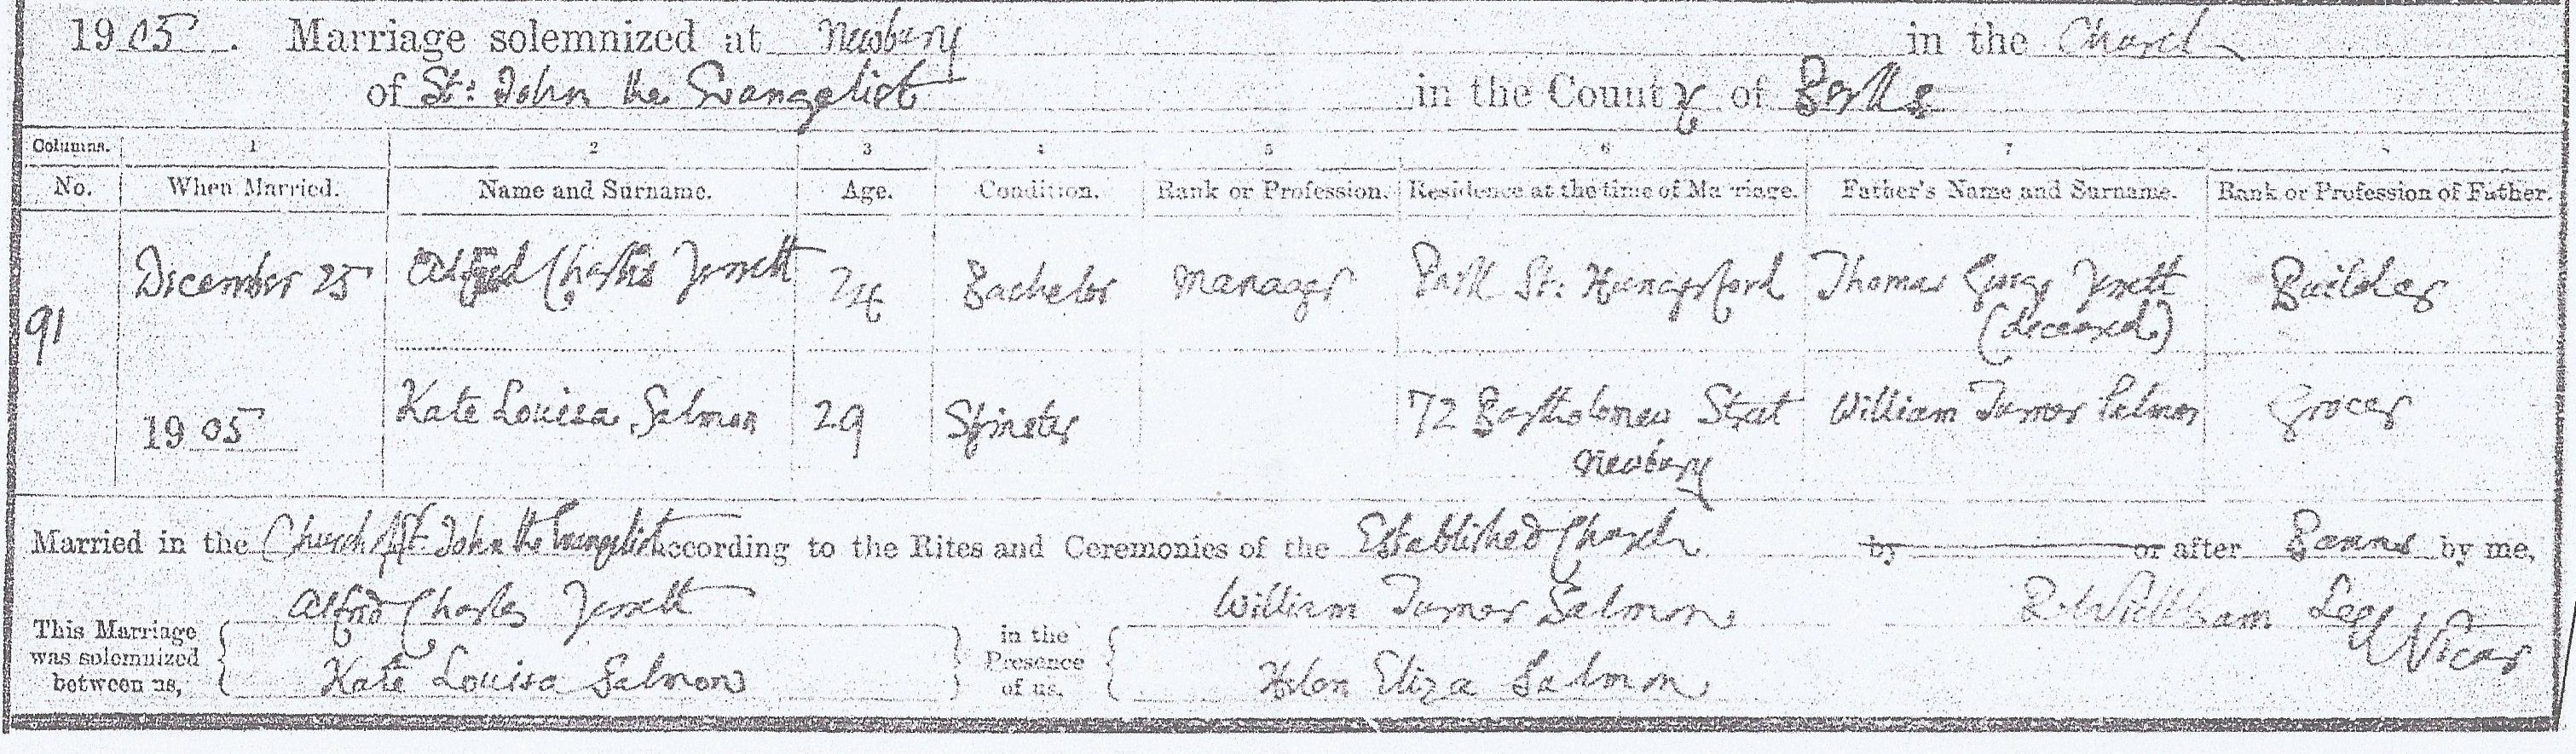 1905. Marriage solemnized at Newbury in the Church
of St: John the Evangelist in the County of Berks
Columns. 1 2 3 4 5 6 7
No. When Married. Name and Surname. Age. Condition. Rank or Profession. Residence at the time of Marriage. Father's Name and Surname. Rank or Profession of Father.
91 December 25 Alfred Charles 24 Bachelor Manager Park St: Hungerford Thomas George Builder
(deceased)
1905 Kate Louisa Salmon 29 Spinster 72 Bartholomew Street William Turner Salmon Grocer
Newbury
Married in the Church of St John the Evangelist according to the Rites and Ceremonies of the Established Church by or after Banns by me,
Alfred Charles William Turner Salmon Lee
This Marriage was solemnized between us, in the Presence of us, Vicar
Kate Louisa Salmon Helen Eliza Salmon